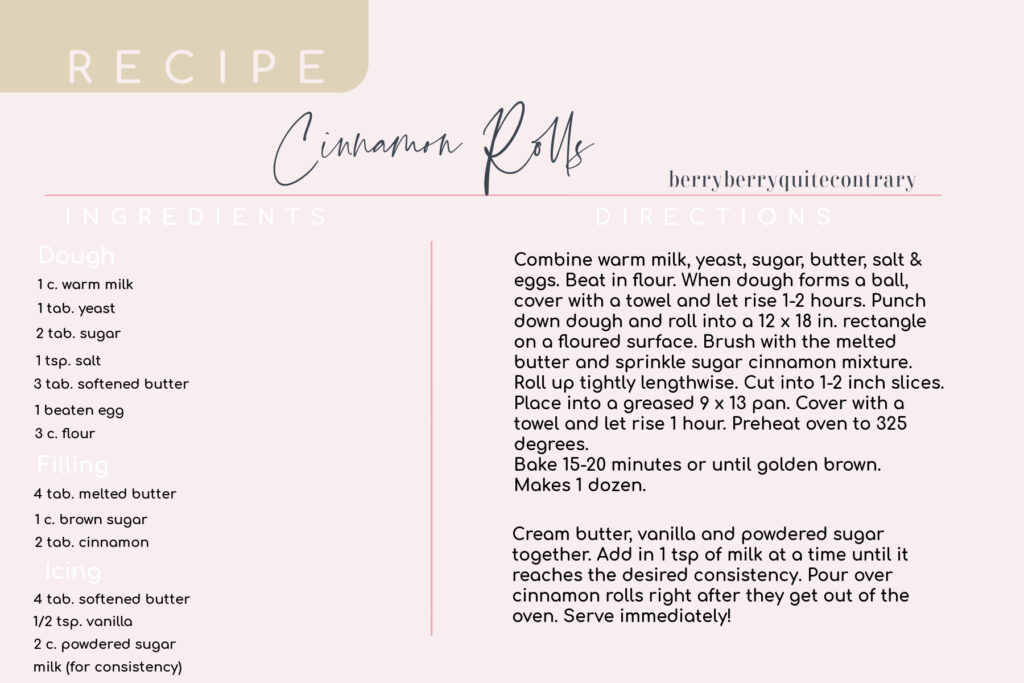 RECIPE
Cinnamon Rolls
berryberryquitecontrary
INGREDIENTS
Dough
1 c. warm milk
1 tab. yeast
2 tab. sugar
1 tsp. salt
3 tab. softened butter
1 beaten egg
3 c. flour
Filling
4 tab. melted butter
1 c. brown sugar
2 tab. cinnamon
Icing
4 tab. softened butter
1/2 tsp. vanilla
2 c. powdered sugar
milk (for consistency)
DIRECTIONS
Combine warm milk, yeast, sugar, butter, salt &
eggs. Beat in flour. When dough forms a ball,
cover with a towel and let rise 1-2 hours. Punch
down dough and roll into a 12 x 18 in. rectangle
on a floured surface. Brush with the melted
butter and sprinkle sugar cinnamon mixture.
Roll up tightly lengthwise. Cut into 1-2 inch slices.
Place into a greased 9 x 13 pan. Cover with a
towel and let rise 1 hour. Preheat oven to 325
degrees.
Bake 15-20 minutes or until golden brown.
Makes 1 dozen.
Cream butter, vanilla and powdered sugar
together. Add in 1 tsp of milk at a time until it
reaches the desired consistency. Pour over
cinnamon rolls right after they get out of the
oven. Serve immediately!